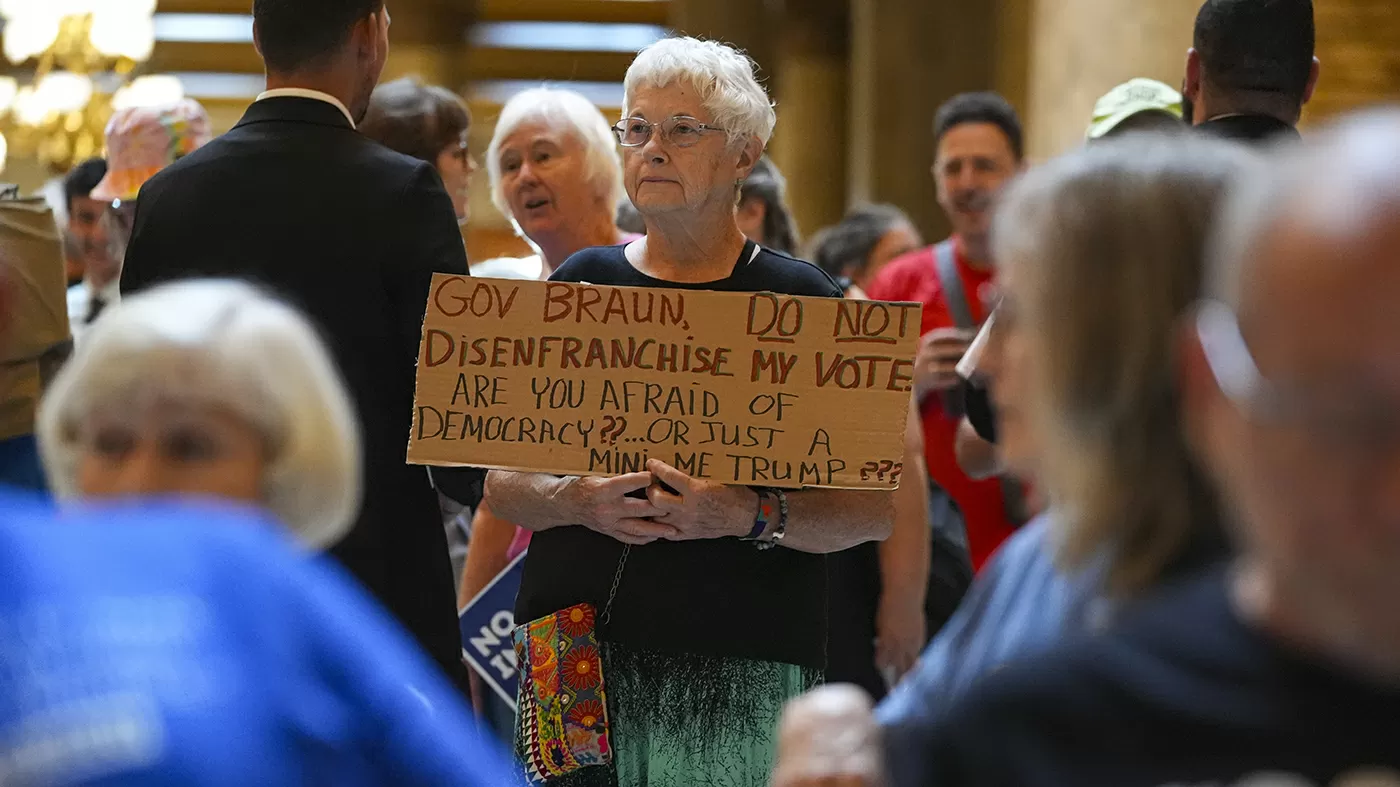 GOV BRAUN, DO NOT
DISENFRANCHISE MY VOTE.
ARE YOU AFRAID OF
DEMOCRACY??...OR JUST A
MINI ME TRUMP ???
NO